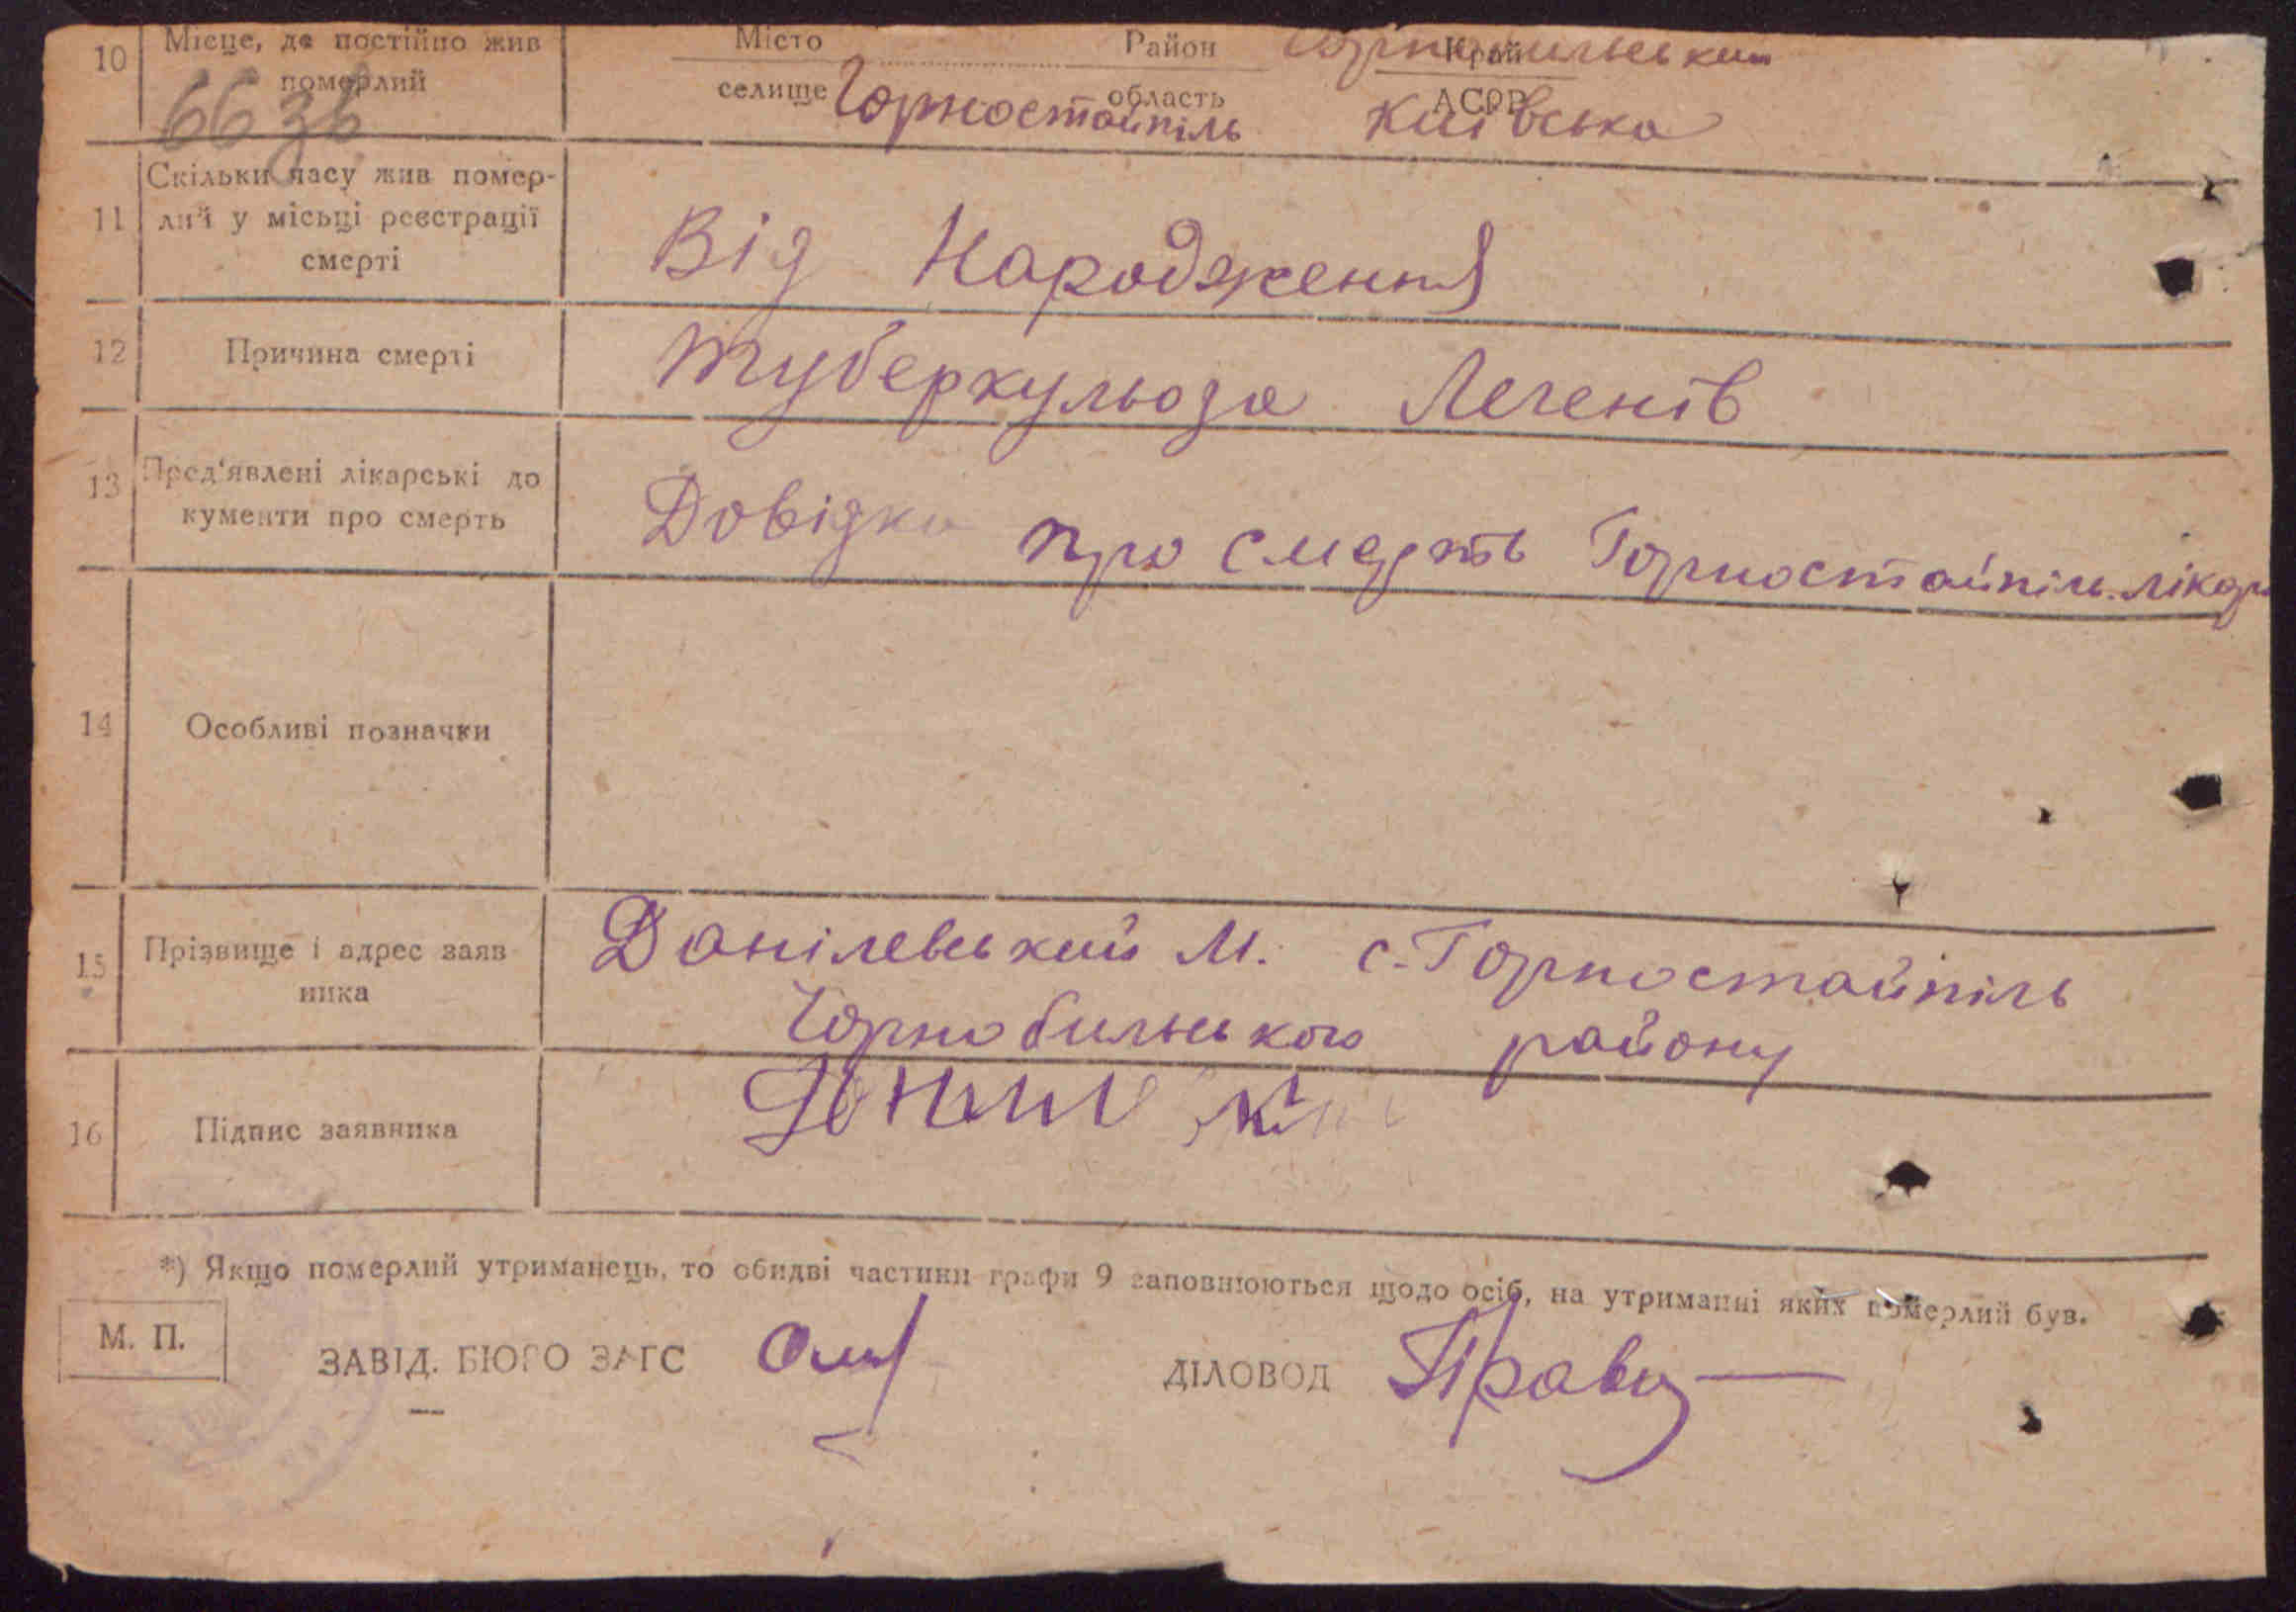 10 Місце, де постійно жив Місто Район Чорнобильський Край
померлий селище Горностайпіль область Київська АСРР
11 Скільки часу жив помер-
лий у місьці реєстрації Від Народження
смерті
12 Причина смерті Туберкульоза Легенів
13 Пред'явлені лікарські до
кументи про смерть Довідка про смерть Горностайпіль. лікар
14 Особливі позначки
15 Прізвище і адрес заяв Данілевський М. с. Горностайпіль
ника Чорнобильського району
16 Підпис заявника
*) Якщо померлий утриманець, то обидві частини графи 9 заповнюються щодо осіб, на утриманні яких померлий був.
М. П.
ЗАВІД. БЮРО ЗАГС ДІЛОВОД